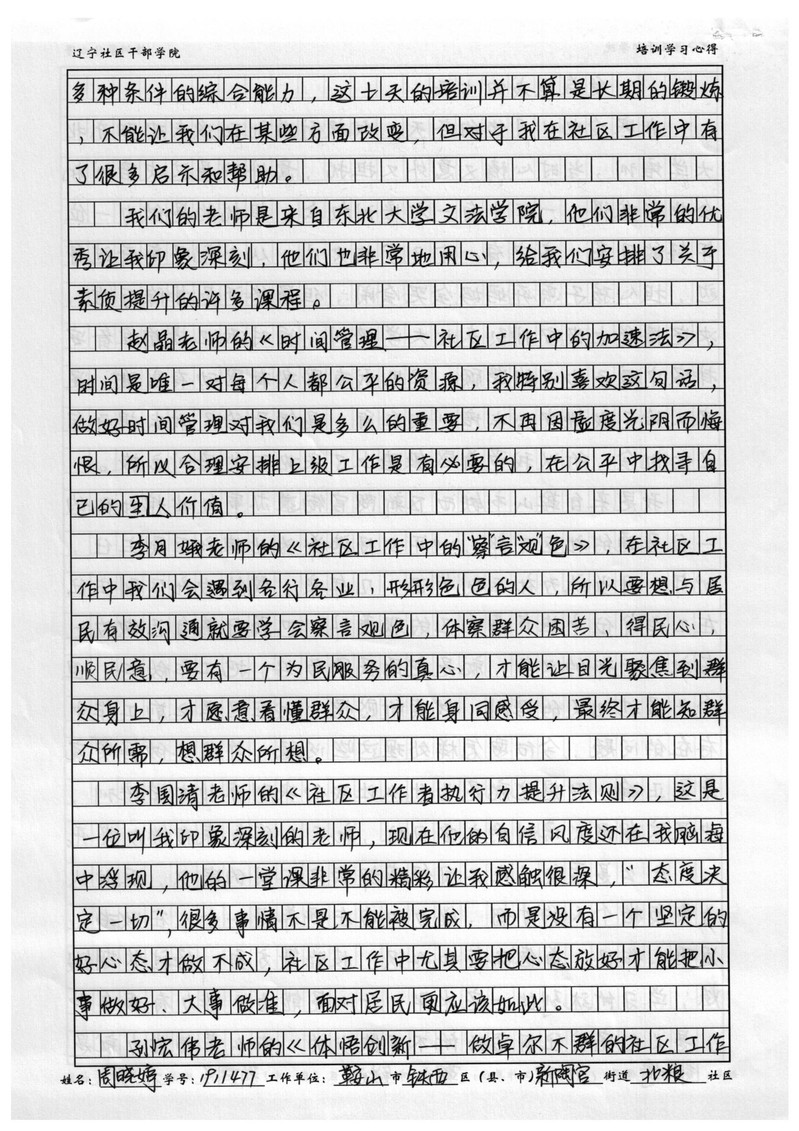 辽宁社区干部学院 培训学习心得
多种条件的综合能力，这七天的培训并不算是长期的锻炼
，不能让我们在某些方面改变，但对于我在社区工作中有
了很多启示和帮助。
我们的老师是来自东北大学文法学院，他们非常的优
秀让我印象深刻，他们也非常地用心，给我们安排了关于
素质提升的许多课程。
赵晶老师的《时间管理——社区工作中的加速法》，
时间是唯一对每个人都公平的资源，我特别喜欢这句话，
做好时间管理对我们是多么的重要，不再因虚度光阴而悔
恨，所以合理安排上级工作是有必要的，在公平中找寻自
己的至人价值。
李月娥老师的《社区工作中的"察"言"观"色》，在社区工
作中我们会遇到各行各业，形形色色的人，所以要想与居
民有效沟通就要学会察言观色，体察群众困苦、得民心，
顺民意，要有一个为民服务的真心，才能让目光聚焦到群
众身上，才愿意看懂群众，才能身同感受，最终才能知群
众所需，想群众所想。
李国清老师的《社区工作者执行力提升法则》，这是
一位叫我印象深刻的老师，现在他的自信风度还在我脑海
中浮现，他的一堂课非常的精彩让我感触很深，"态度决
定一切"，很多事情不是不能被完成，而是没有一个坚定的
好心态才做不成，社区工作中尤其要把心态放好才能把小
事做好、大事做准，面对居民更应该如此。
孙宏伟老师的《体悟创新——做卓尔不群的社区工作
姓名：周晓婷 学号：1911477 工作单位：鞍山市铁西区（县、市）新陶官街道北粮社区